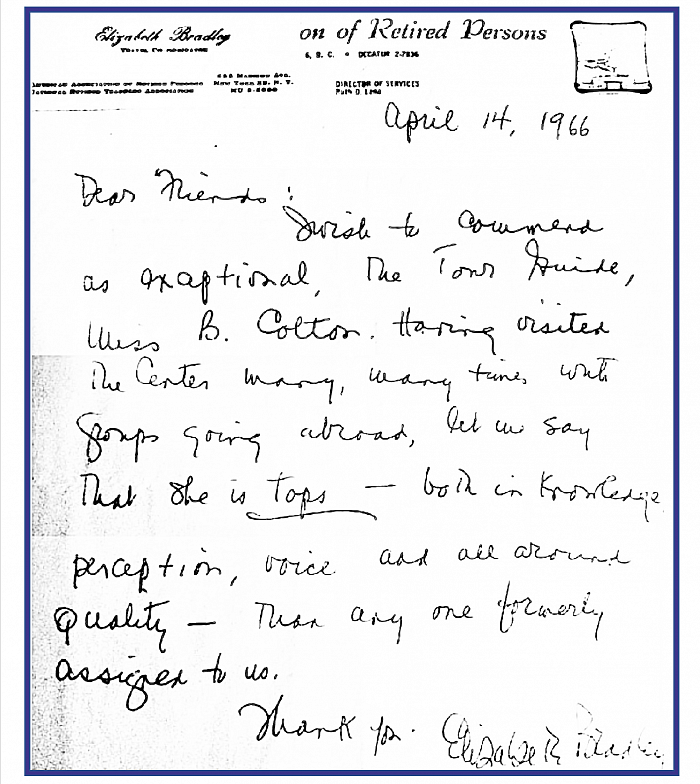 Elizabeth Bradley
on of Retired Persons
6, D. C. • DECATUR 2-7836
DIRECTOR OF SERVICES
April 14, 1966
Dear Friends:
I wish to commend
as exaptional, the Tour Guide,
Miss B. Colton. Having visited
the Center many, many times with
groups going abroad, let me say
that she is tops — both in knowledge
perception, voice and all around
quality — than any one formerly
assigned to us.
Thank you. Elizabeth Bradley